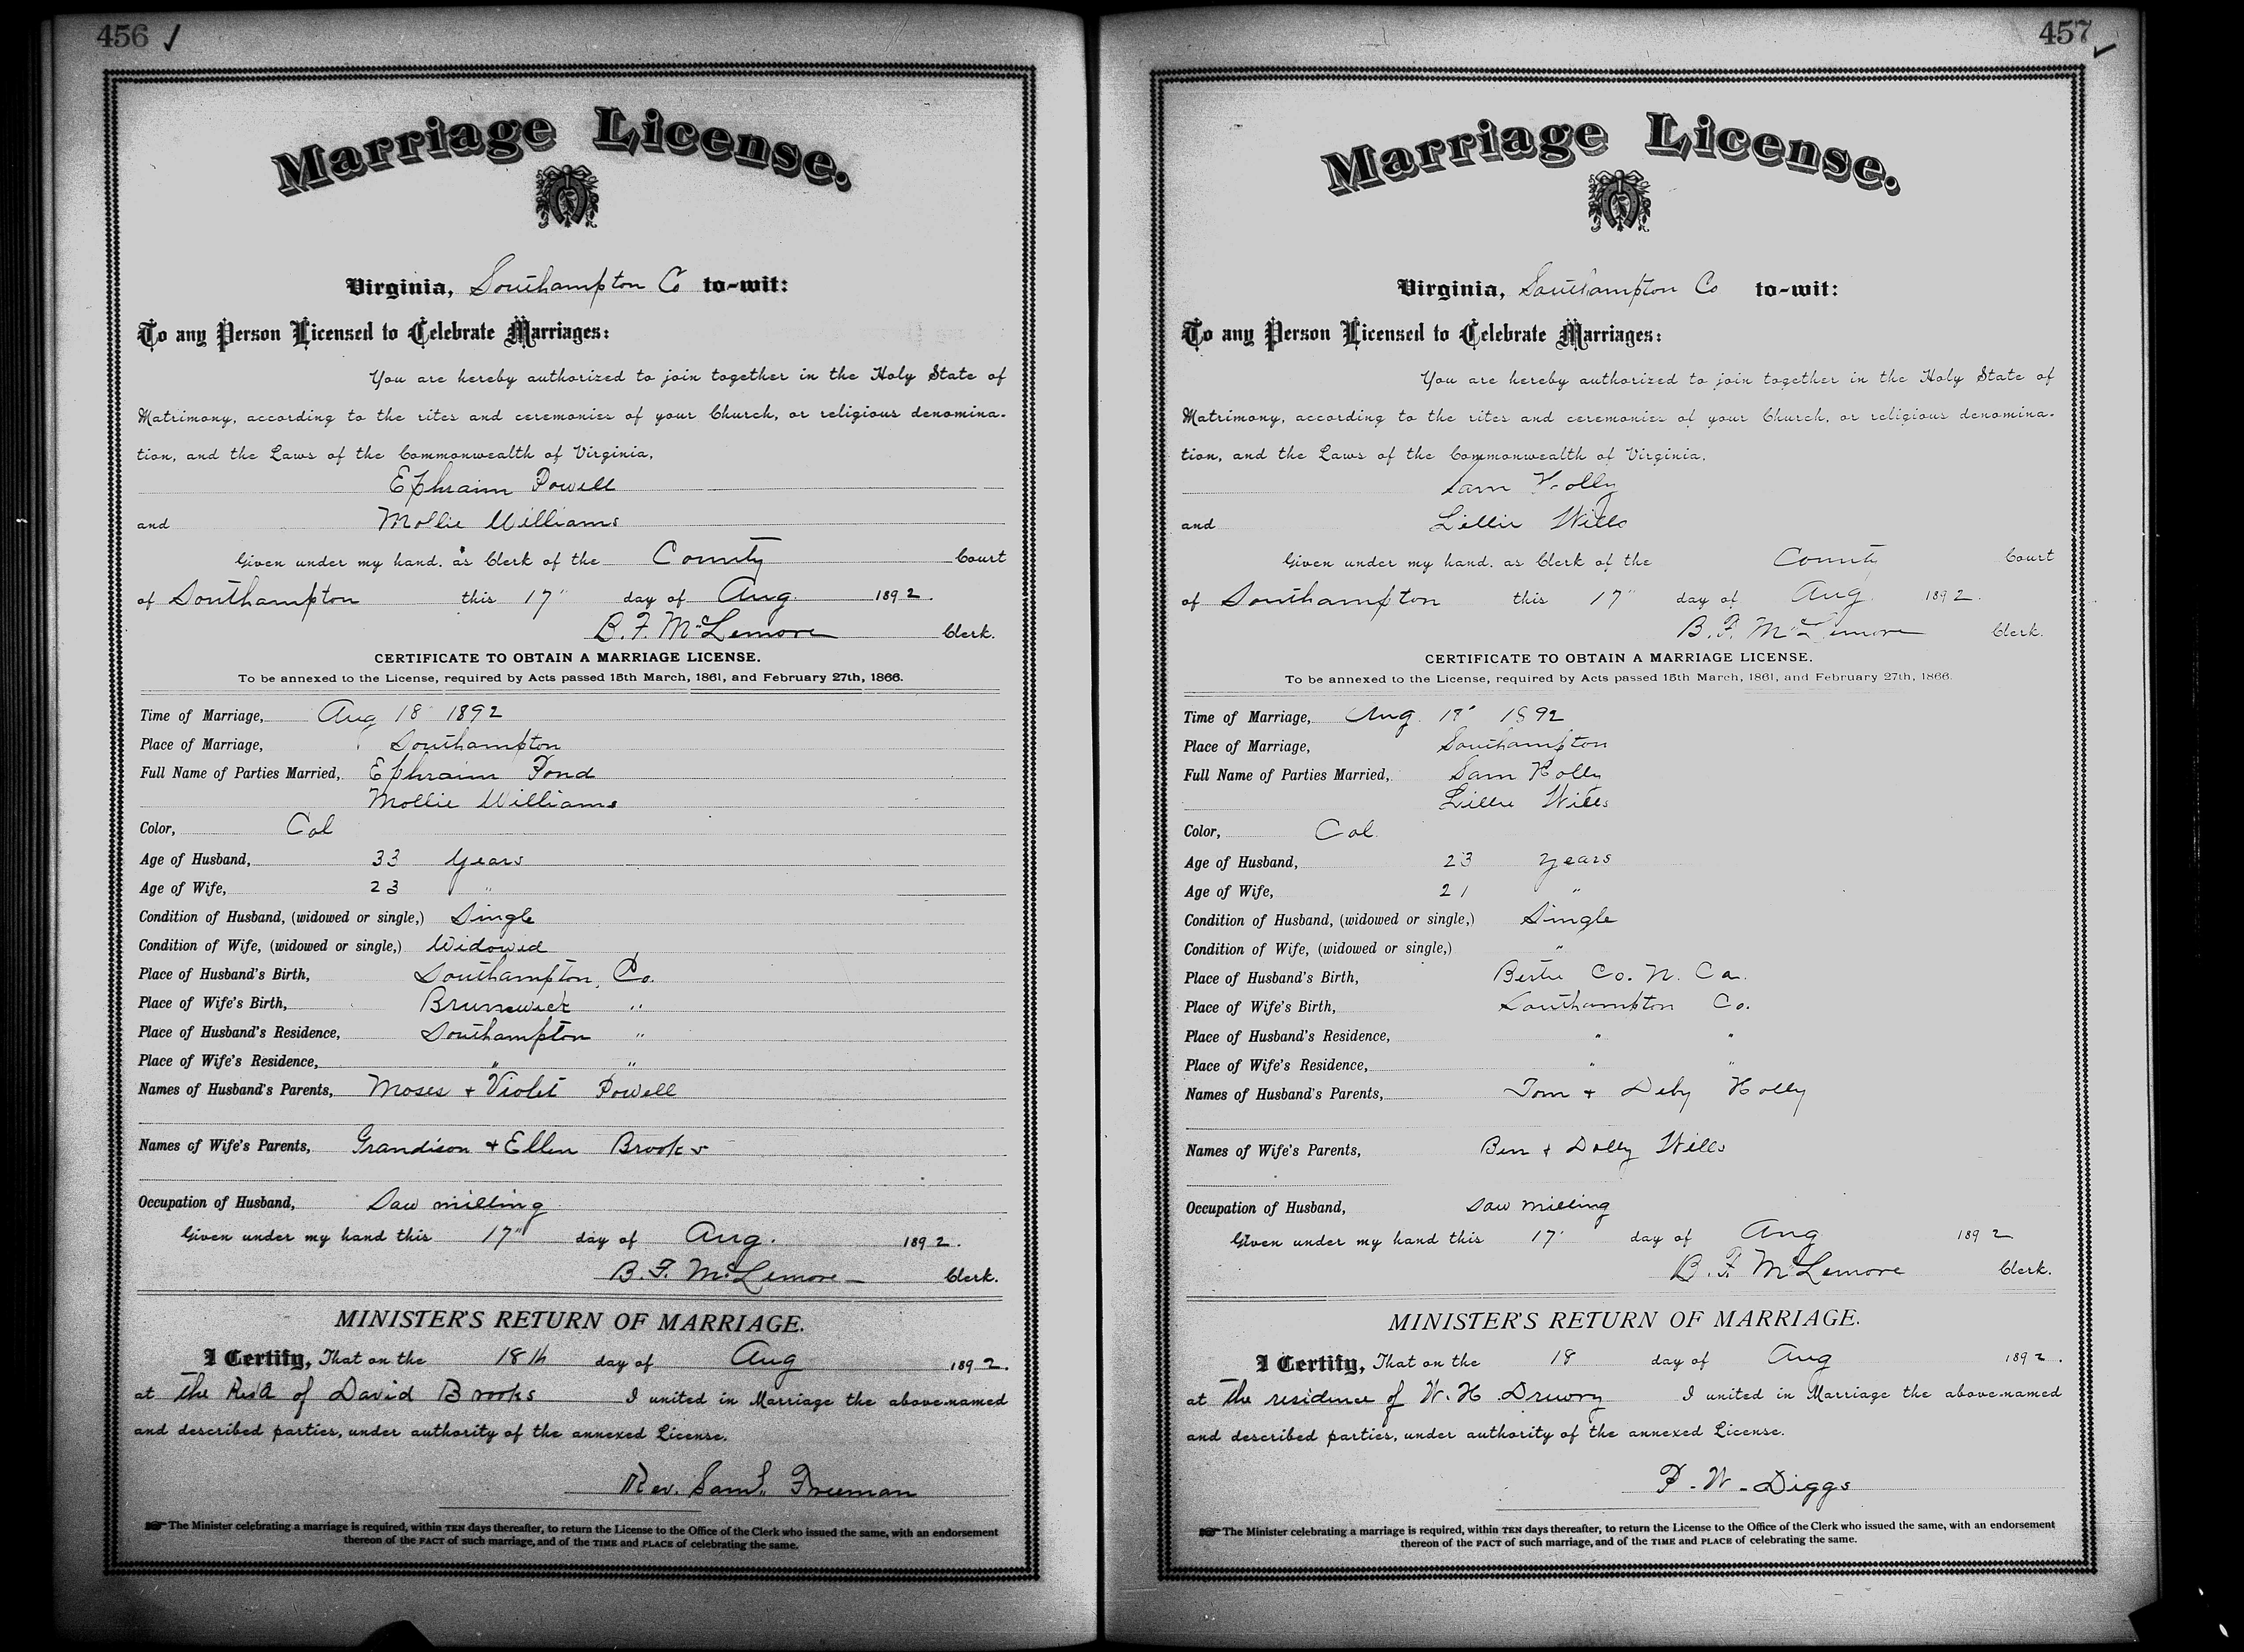 456 ✓
Marriage License.
Virginia, Southampton Co to-wit:
To any Person Licensed to Celebrate Marriages:
You are hereby authorized to join together in the Holy State of
Matrimony, according to the rites and ceremonies of your Church, or religious denomina-
tion, and the Laws of the Commonwealth of Virginia,
Ephraim Powell
and Mollie Williams
Given under my hand, as Clerk of the County Court
of Southampton this 17" day of Aug. 1892.
B. F. McLemore Clerk.
CERTIFICATE TO OBTAIN A MARRIAGE LICENSE.
To be annexed to the License, required by Acts passed 15th March, 1861, and February 27th, 1866.
Time of Marriage, Aug 18" 1892
Place of Marriage, Southampton
Full Name of Parties Married, Ephraim Pond
Mollie Williams
Color, Col
Age of Husband, 33 years
Age of Wife, 23 "
Condition of Husband, (widowed or single,) Single
Condition of Wife, (widowed or single,) Widowed
Place of Husband's Birth, Southampton, Co.
Place of Wife's Birth, Brunswick "
Place of Husband's Residence, Southampton "
Place of Wife's Residence, " "
Names of Husband's Parents, Moses + Violet Powell
Names of Wife's Parents, Grandison + Ellen Brooks
Occupation of Husband, Saw milling
Given under my hand this 17" day of Aug. 1892.
B. F. McLemore Clerk.
MINISTER'S RETURN OF MARRIAGE.
I Certify, That on the 18th day of Aug 1892.
at the Resd of David Brooks I united in Marriage the above-named
and described parties, under authority of the annexed License.
Rev. Saml. Freeman
☛ The Minister celebrating a marriage is required, within TEN days thereafter, to return the License to the Office of the Clerk who issued the same, with an endorsement
thereon of the FACT of such marriage, and of the TIME and PLACE of celebrating the same.
457 ✓
Marriage License.
Virginia, Southampton Co to-wit:
To any Person Licensed to Celebrate Marriages:
You are hereby authorized to join together in the Holy State of
Matrimony, according to the rites and ceremonies of your Church, or religious denomina-
tion, and the Laws of the Commonwealth of Virginia,
Sam Holly
and Lillie Wills
Given under my hand, as Clerk of the County Court
of Southampton this 17" day of Aug 1892.
B. F. McLemore Clerk.
CERTIFICATE TO OBTAIN A MARRIAGE LICENSE.
To be annexed to the License, required by Acts passed 15th March, 1861, and February 27th, 1866.
Time of Marriage, Aug. 18" 1892
Place of Marriage, Southampton
Full Name of Parties Married, Sam Holly
Lillie Wills
Color, Col.
Age of Husband, 23 years
Age of Wife, 21 "
Condition of Husband, (widowed or single,) Single
Condition of Wife, (widowed or single,) "
Place of Husband's Birth, Bertie Co. N. Ca.
Place of Wife's Birth, Southampton Co.
Place of Husband's Residence, " "
Place of Wife's Residence, " "
Names of Husband's Parents, Tom + Deby Holly
Names of Wife's Parents, Ben + Dolly Wills
Occupation of Husband, Saw milling
Given under my hand this 17" day of Aug 1892
B. F. McLemore Clerk.
MINISTER'S RETURN OF MARRIAGE.
I Certify, That on the 18 day of Aug 1892.
at the residence of W. H. Drewry I united in Marriage the above-named
and described parties, under authority of the annexed License.
P. W. Diggs
☛ The Minister celebrating a marriage is required, within TEN days thereafter, to return the License to the Office of the Clerk who issued the same, with an endorsement
thereon of the FACT of such marriage, and of the TIME and PLACE of celebrating the same.